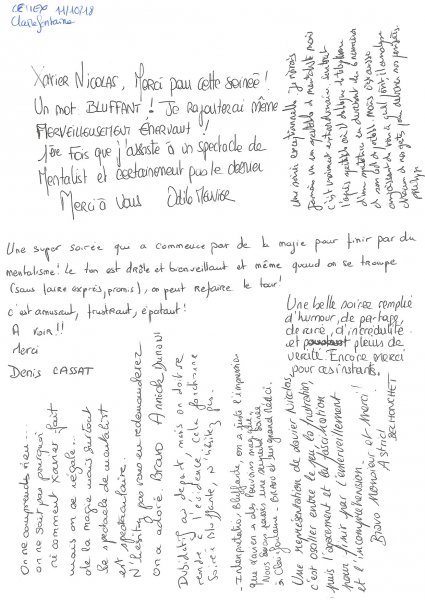 11/10/18
Clairefontaine
Xavier Nicolas, Merci pour cette soirée !
Un mot BLUFFANT ! Je rajouterai même
MERVEILLEUSEMENT ÉNERVANT !
1ère Fois que j'assiste à un spectacle de
Mentalist et certainement pas le dernier
Merci à vous Odile Meunier
Une soirée exceptionnelle, je n'avais
jamais vu un spectacle de mentalist mais
c'est vraiment extraordinaire surtout
Une super soirée qui a commencé par de la magie pour finir par du
mentalisme! Le ton est drôle et bienveillant et même quand on se trompe
(sans faire exprès, promis), on peut refaire le tour!
c'est amusant, frustrant, épatant!
A voir!!
Merci
Denis CASSAT
Une belle soirée remplie
d'humour, de partage,
de rire, d'incrédulité
et pleins de
vérité. Encore merci
pour ces instants.
On ne comprends rien...
on ne sait pas pourquoi
ni comment Xavier fait
mais on se régale...
de la magie mais surtout
le spectacle de mentalist
est spectaculaire,
N'hésitez pas vous en redemanderez
on a adoré. Bravo Annick
Dubitatif au départ mais on doit se
rendre à l'évidence, cela fonctionne
Soirée bluffante, N'hésitez pas.
- Interprétation Bluffante, on a juste l'impression
que Xavier a des pouvoirs magiques
Nous avons passé une super soirée
à Clairefontaine - Bravo et un grand Merci.
Une représentation de Xavier Nicolas,
c'est osciller entre le jeu, la frustration,
puis l'agacement et la fascination
pour finir par l'émerveillement
et l'incompréhension.
Bravo Monsieur et Merci!
Astrid